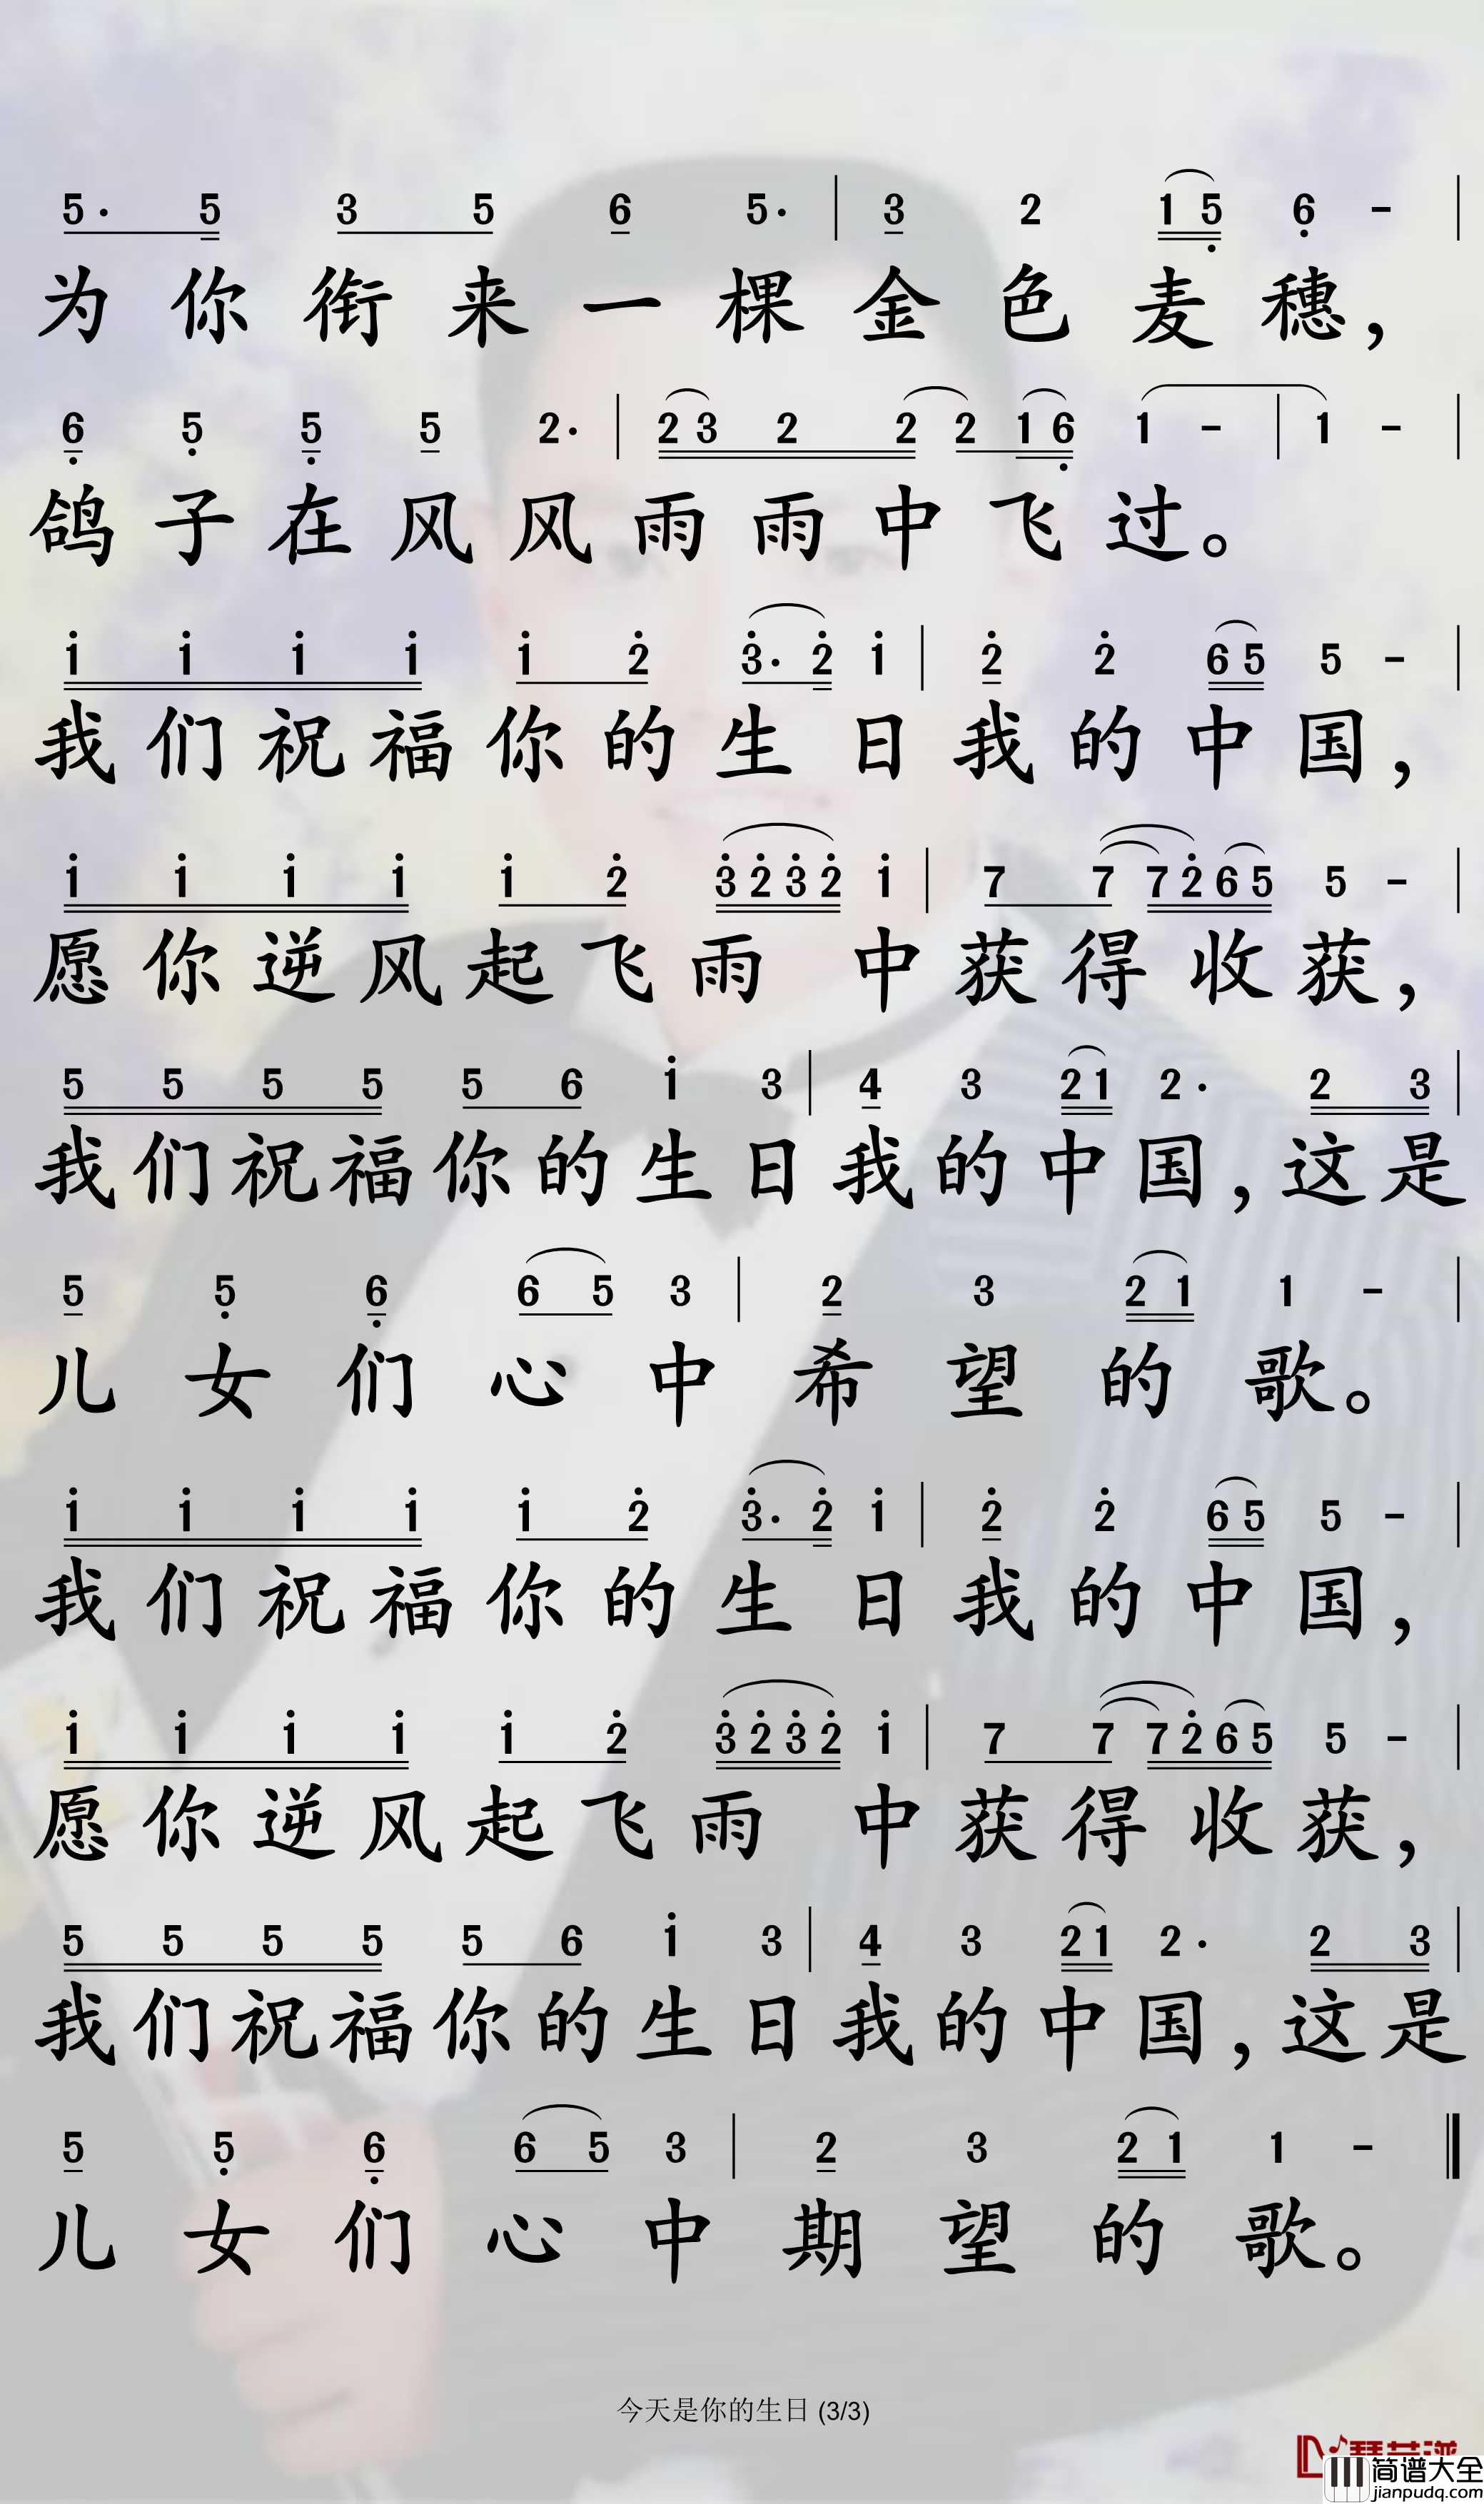 5· 5 3 5 6 5· | 3 2 1 5 6 - |
为你衔来一棵金色麦穗，
6 5 5 5 2· | 2 3 2 2 2 1 6 1 - | 1 - |
鸽子在风风雨雨中飞过。
1 1 1 1 1 2 3· 2 1 | 2 2 6 5 5 - |
我们祝福你的生日我的中国，
1 1 1 1 1 2 3 2 3 2 1 | 7 7 7 2 6 5 5 - |
愿你逆风起飞雨 中获得收获，
5 5 5 5 5 6 1 3 | 4 3 2 1 2· 2 3 |
我们祝福你的生日我的中国，这是
5 5 6 6 5 3 | 2 3 2 1 1 - |
儿女们心中希望的歌。
1 1 1 1 1 2 3· 2 1 | 2 2 6 5 5 - |
我们祝福你的生日我的中国，
1 1 1 1 1 2 3 2 3 2 1 | 7 7 7 2 6 5 5 - |
愿你逆风起飞雨 中获得收获，
5 5 5 5 5 6 1 3 | 4 3 2 1 2· 2 3 |
我们祝福你的生日我的中国，这是
5 5 6 6 5 3 | 2 3 2 1 1 - ‖
儿女们心中期望的歌。
今天是你的生日 (3/3)
简谱大全
jianpudq.com